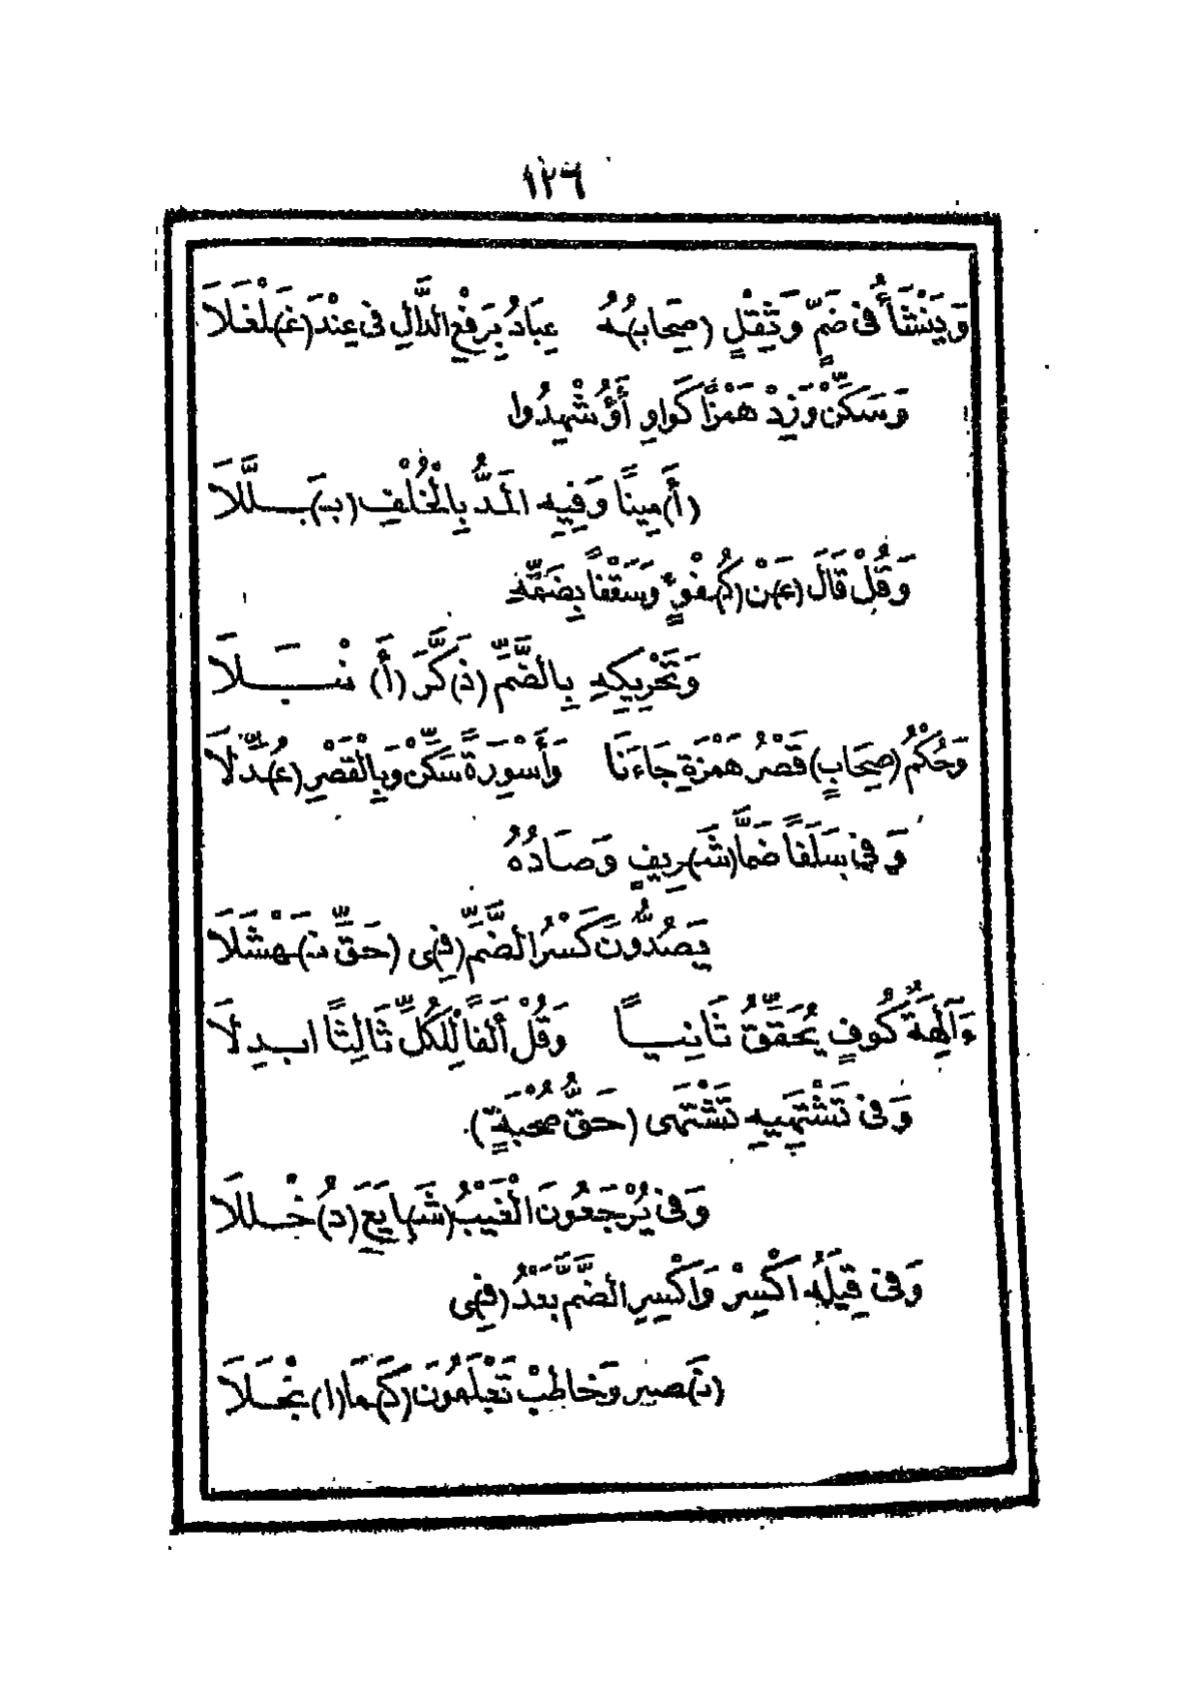 ١٢٦
وَيَنْشَأُ فِي ضَمٍّ وَثِقْلٍ (صِحَابُ)ـهُ عِبَادُ بِرَفْعِ الدَّالِ فِي عِنْدَ (غَـ)ـلْغَلَا
وَسَكِّنْ وَزِدْ هَمْزًا كَوَاوٍ أَؤُشْهِدُوا
(أَ)مِينًا وَفِيهِ الْمَدُّ بِالْخُلْفِ (بَـ)ـلَّلَا
وَقُلْ قَالَ (عَـ)ـنْ (كُـ)ـفْوٍ وَسَقْفًا بِضَمِّهِ
وَتَحْرِيكِهِ بِالضَّمِّ (ذَ)كَّرَ (أَ)نْبَلَا
وَحُكْمُ (صِحَابٍ) قَصْرُ هَمْزَةِ جَاءَنَا وَأَسْوِرَةٌ سَكِّنْ وَبِالْقَصْرِ (عُـ)ـدِّلَا
وَفِي سَلَفًا ضَمَّا (شَـ)ـرِيفٍ وَصَادُهُ
يَصُدُّونَ كَسْرُ الضَّمِّ (فِـ)ـي (حَقِّ نَـ)ـهْشَلَا
ءَآلِهَةٌ كُوفٍ يُحَقِّقُ ثَانِيًا وَقُلْ أَلِفًا لِلْكُلِّ ثَالِثًا ابْدِلَا
وَفِي تَشْتَهِيهِ تَشْتَهِي (حَقُّ صُحْبَةٍ)
وَفِي يُرْجَعُونَ الْغَيْبُ (شَـ)ـايَعَ (دُ)خْلُلَا
وَفِي قِيلَهُ اكْسِرْ وَاكْسِرِ الضَّمَّ بَعْدُ (فِـ)ـي
(نَـ)ـصِيرٍ وَخَاطِبْ تَعْلَمُونَ (كَـ)ـمَا (ا)نْجَلَا